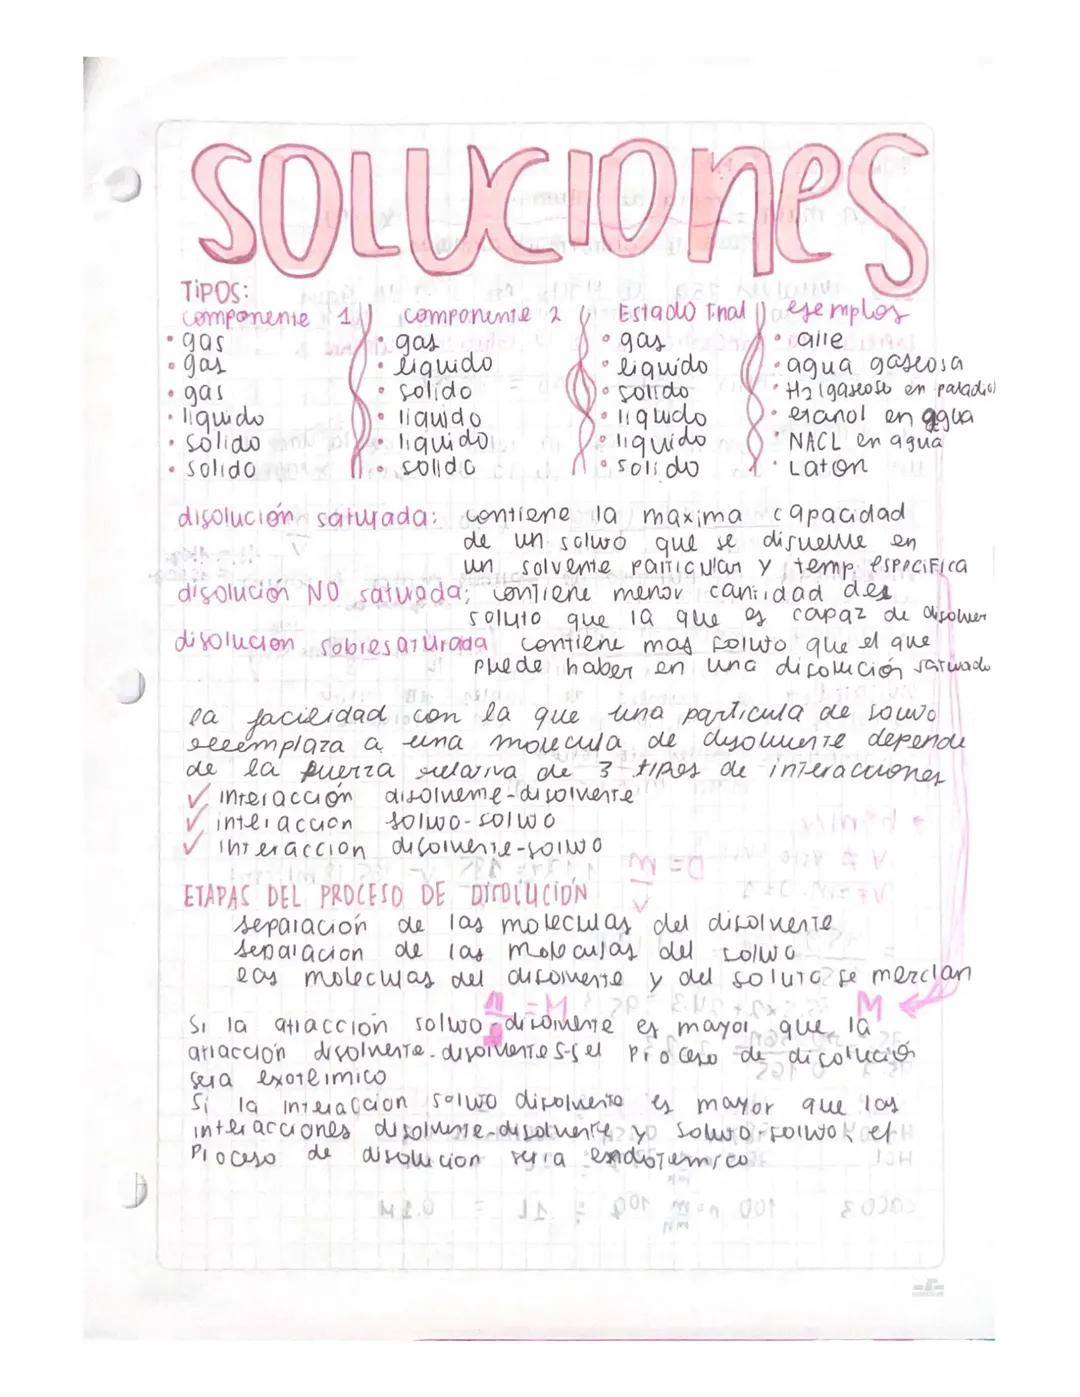 SOLUCIONES
TIPOS:
componente 1 componente 2 Estado final ejemplos
• gas • gas • gas • aire
• gas • liquido • liquido • agua gaseosa
• gas • solido • solido • H2 (gaseoso en paladio)
• liquido • liquido • liquido • etanol en agua
• solido • liquido • liquido • NACL en agua
• solido • solido • solido • Laton
disolución saturada: contiene la maxima capacidad
de un soluto que se disuelve en
un solvente particular y temp. especifica
disolución NO saturada; contiene menor cantidad del
soluto que la que es capaz de disolver
disolucion sobresaturada contiene mas soluto que el que
puede haber en una disolución saturado
la facilidad con la que una particula de soluto
reemplaza a una molecula de disolvente depende
de la fuerza relativa de 3 tipos de interacciones
✓ interacción disolvente-disolvente
✓ interaccion soluto-soluto
✓ interaccion disolvente-soluto
ETAPAS DEL PROCESO DE DISOLUCIÓN
separación de las moleculas del disolvente
separacion de las moleculas del soluto
las moleculas del disolvente y del soluto se mezclan
M
Si la atracción soluto-disolvente es mayor que la
atracción disolvente-disolvente s-s el proceso de disolución
sera exotermico
Si la interaccion soluto disolvente es mayor que las
interacciones disolvente-disolvente y soluto-soluto, el
proceso de disolucion seria endotermico